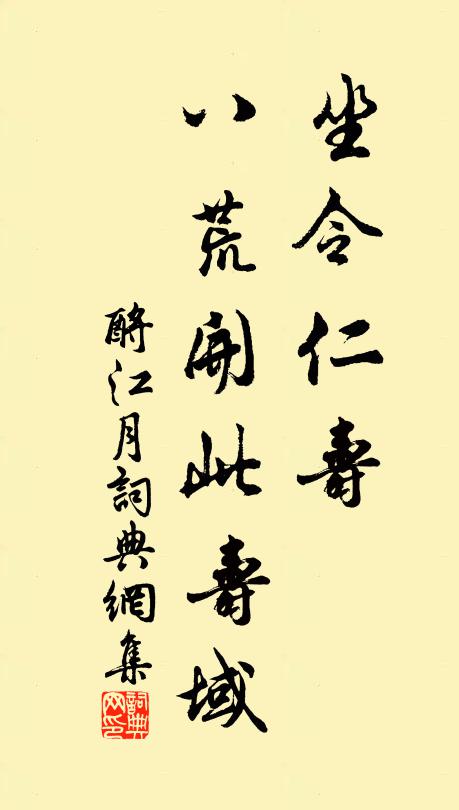 坐令仁壽
八荒開此壽域
酹江月詞典網集
詞典網印